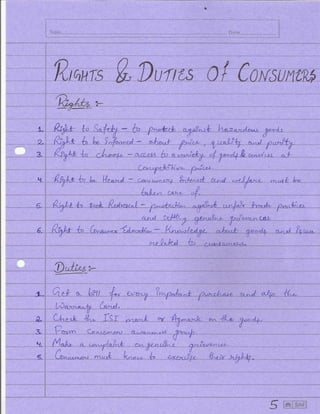 Topic
Date
RIGHTS & DUTIES Of CONSUMERS
Rights :-
1. Right to Safety - to protect against hazardous goods
2. Right to be Informed - about price, quality and purity
3. Right to choose - access to a variety of goods & services at
competitive prices
4. Right to be Heard - consumers interest and welfare must be
taken care of.
5. Right to Seek Redressal - protection against unfair trade practices
and settling genuine grievances
6. Right to Consumer Education - Knowledge about goods and issues
related to consumers.
Duties :-
1. Get a bill for every Important purchase and also the
Warranty Card.
2. Check the ISI mark or Agmark on the goods.
3. Form consumer awareness group
4. Make a complaint on genuine grievances.
5. Consumers must know to exercise their rights.
5